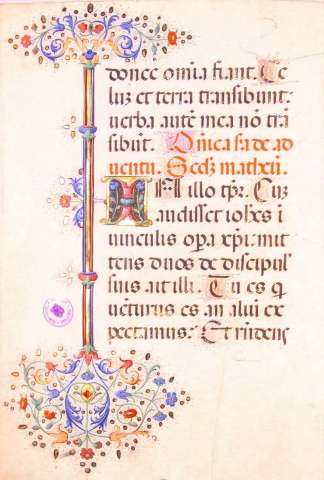 donec omīa fiant. Ce
luz et terra transibunt.
uerba autē mea nō trā
sibūt. Dn̄ica s̄a de ad
uentu. Secd̄z mathm̄.
IN illo tp̄r. Cuz
audisset iohēs ī
uinculis opa xp̄i: mit
tens duos de discipul'
suis ait illi. Tu es q
uēturus es an aliū ex
pectamus. Et rn̄dens